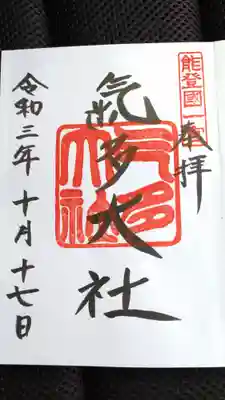 能登國一宮
奉拝
気多大社
令和三年十月十七日